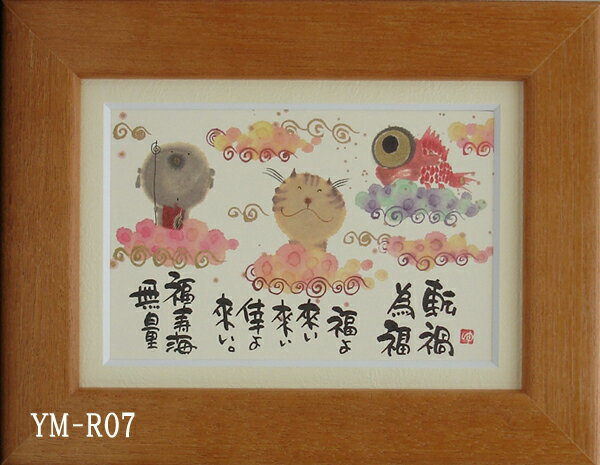 転禍
為福
福よ
来い
来い
倖よ
来い。
福寿海
無量
YM-R07